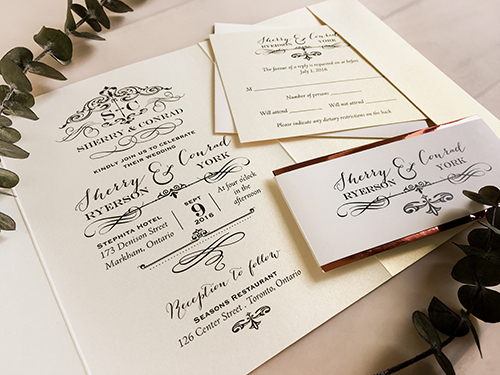 S C
SHERRY & CONRAD
KINDLY JOIN US TO CELEBRATE
THEIR WEDDING
Sherry & Conrad
RYERSON YORK
STEPHITA HOTEL
173 Denison Street
Markham, Ontario
SEPT
9
2016
At four o'clock
in the
afternoon
Reception to follow
SEASONS RESTAURANT
126 Center Street · Toronto, Ontario
Sherry & Conrad
RYERSON YORK
The favour of a reply is requested on or before
July 1, 2016
M
Number of persons
Will attend Will not attend
Please indicate any dietary restrictions on the back
Sherry & Conrad
RYERSON YORK